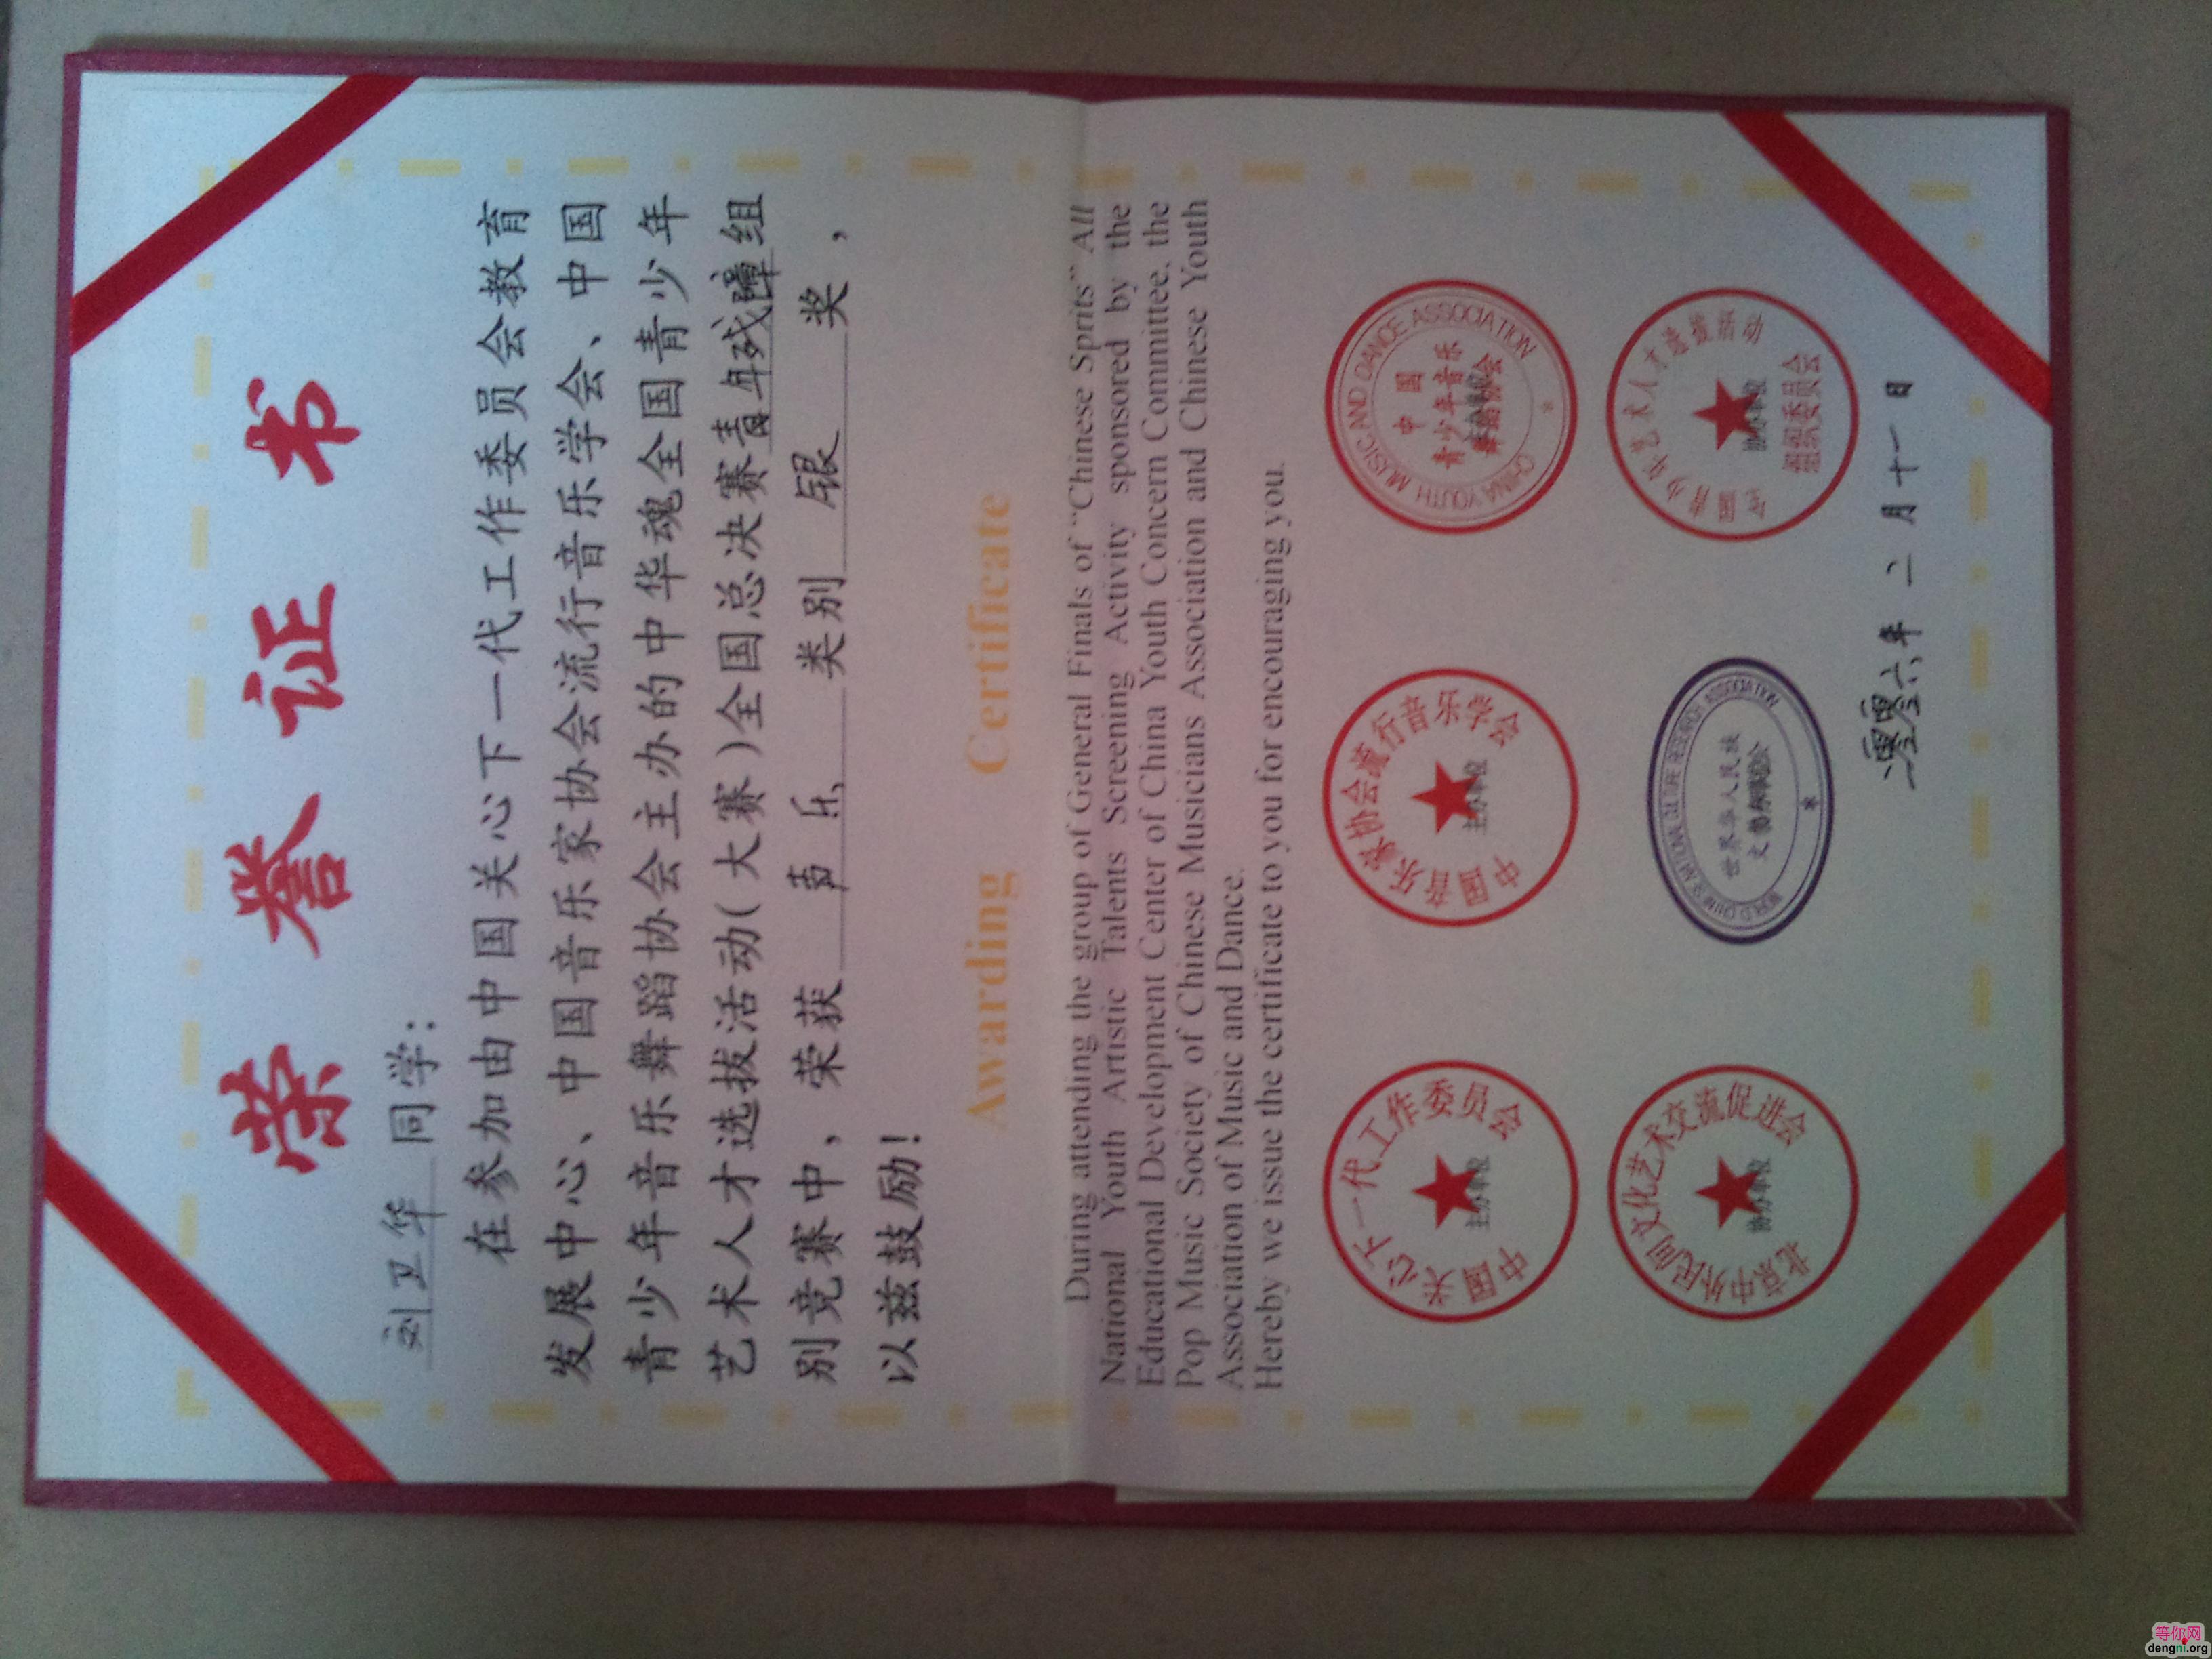 荣誉证书
刘卫华 同学：
在参加由中国关心下一代工作委员会教育
发展中心、中国音乐家协会流行音乐学会、中国
青少年音乐舞蹈协会主办的中华魂全国青少年
艺术人才选拔活动(大赛)全国总决赛青年残障组
别竞赛中，荣获 声乐 类别 银 奖，
以兹鼓励！
Awarding Certificate
During attending the group of General Finals of "Chinese Sprits" All
National Youth Artistic Talents Screening Activity sponsored by the
Educational Development Center of China Youth Concern Committee, the
Pop Music Society of Chinese Musicians Association and Chinese Youth
Association of Music and Dance.
Hereby we issue the certificate to you for encouraging you.
中国关心下一代工作委员会
主办单位
中国音乐家协会流行音乐学会
主办单位
CHINA YOUTH MUSIC AND DANCE ASSOCIATION
中国
青少年音乐
舞蹈协会
北京中外民间文化艺术交流促进会
协办单位
WORLD CHINESE NATIONAL CULTURE RESEARCH ASSOCIATION
世界华人民族
青少年艺术人才选拔活动
组织委员会
协办单位
二零零六年二月十一日
等你网
dengni.org